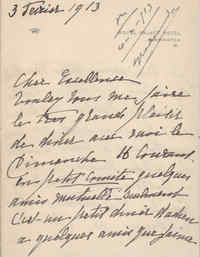 3 Fevrier 1913
HOTEL
Cher Excellence
Voulez vous me faire
le tres grand plaisir
de diner avec moi le
Dimanche 16 Courant.
En petit Comité quelques
amis mutuels seulement
C'est un petit diner
a quelques amis que j'aime